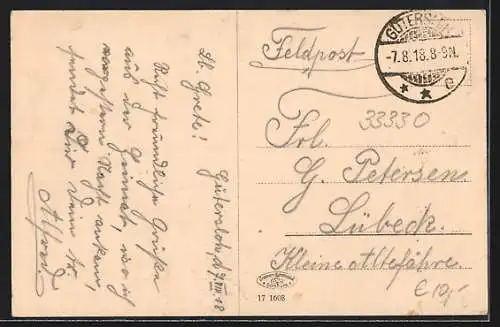 Gütersloh, d. 7.VIII.18
Lb. Grete!
Recht freundliche Grüße
aus der Heimat, wo ich
vorgestern Nacht ankam,
sendet Dir Dein Br.
Alfred.
Feldpost
GÜTERSLOH
-7.8.18.8-9N.
* * e
33330
Frl.
G. Petersen
Lübeck.
Kleine Altefähre
€10,-
17 1608